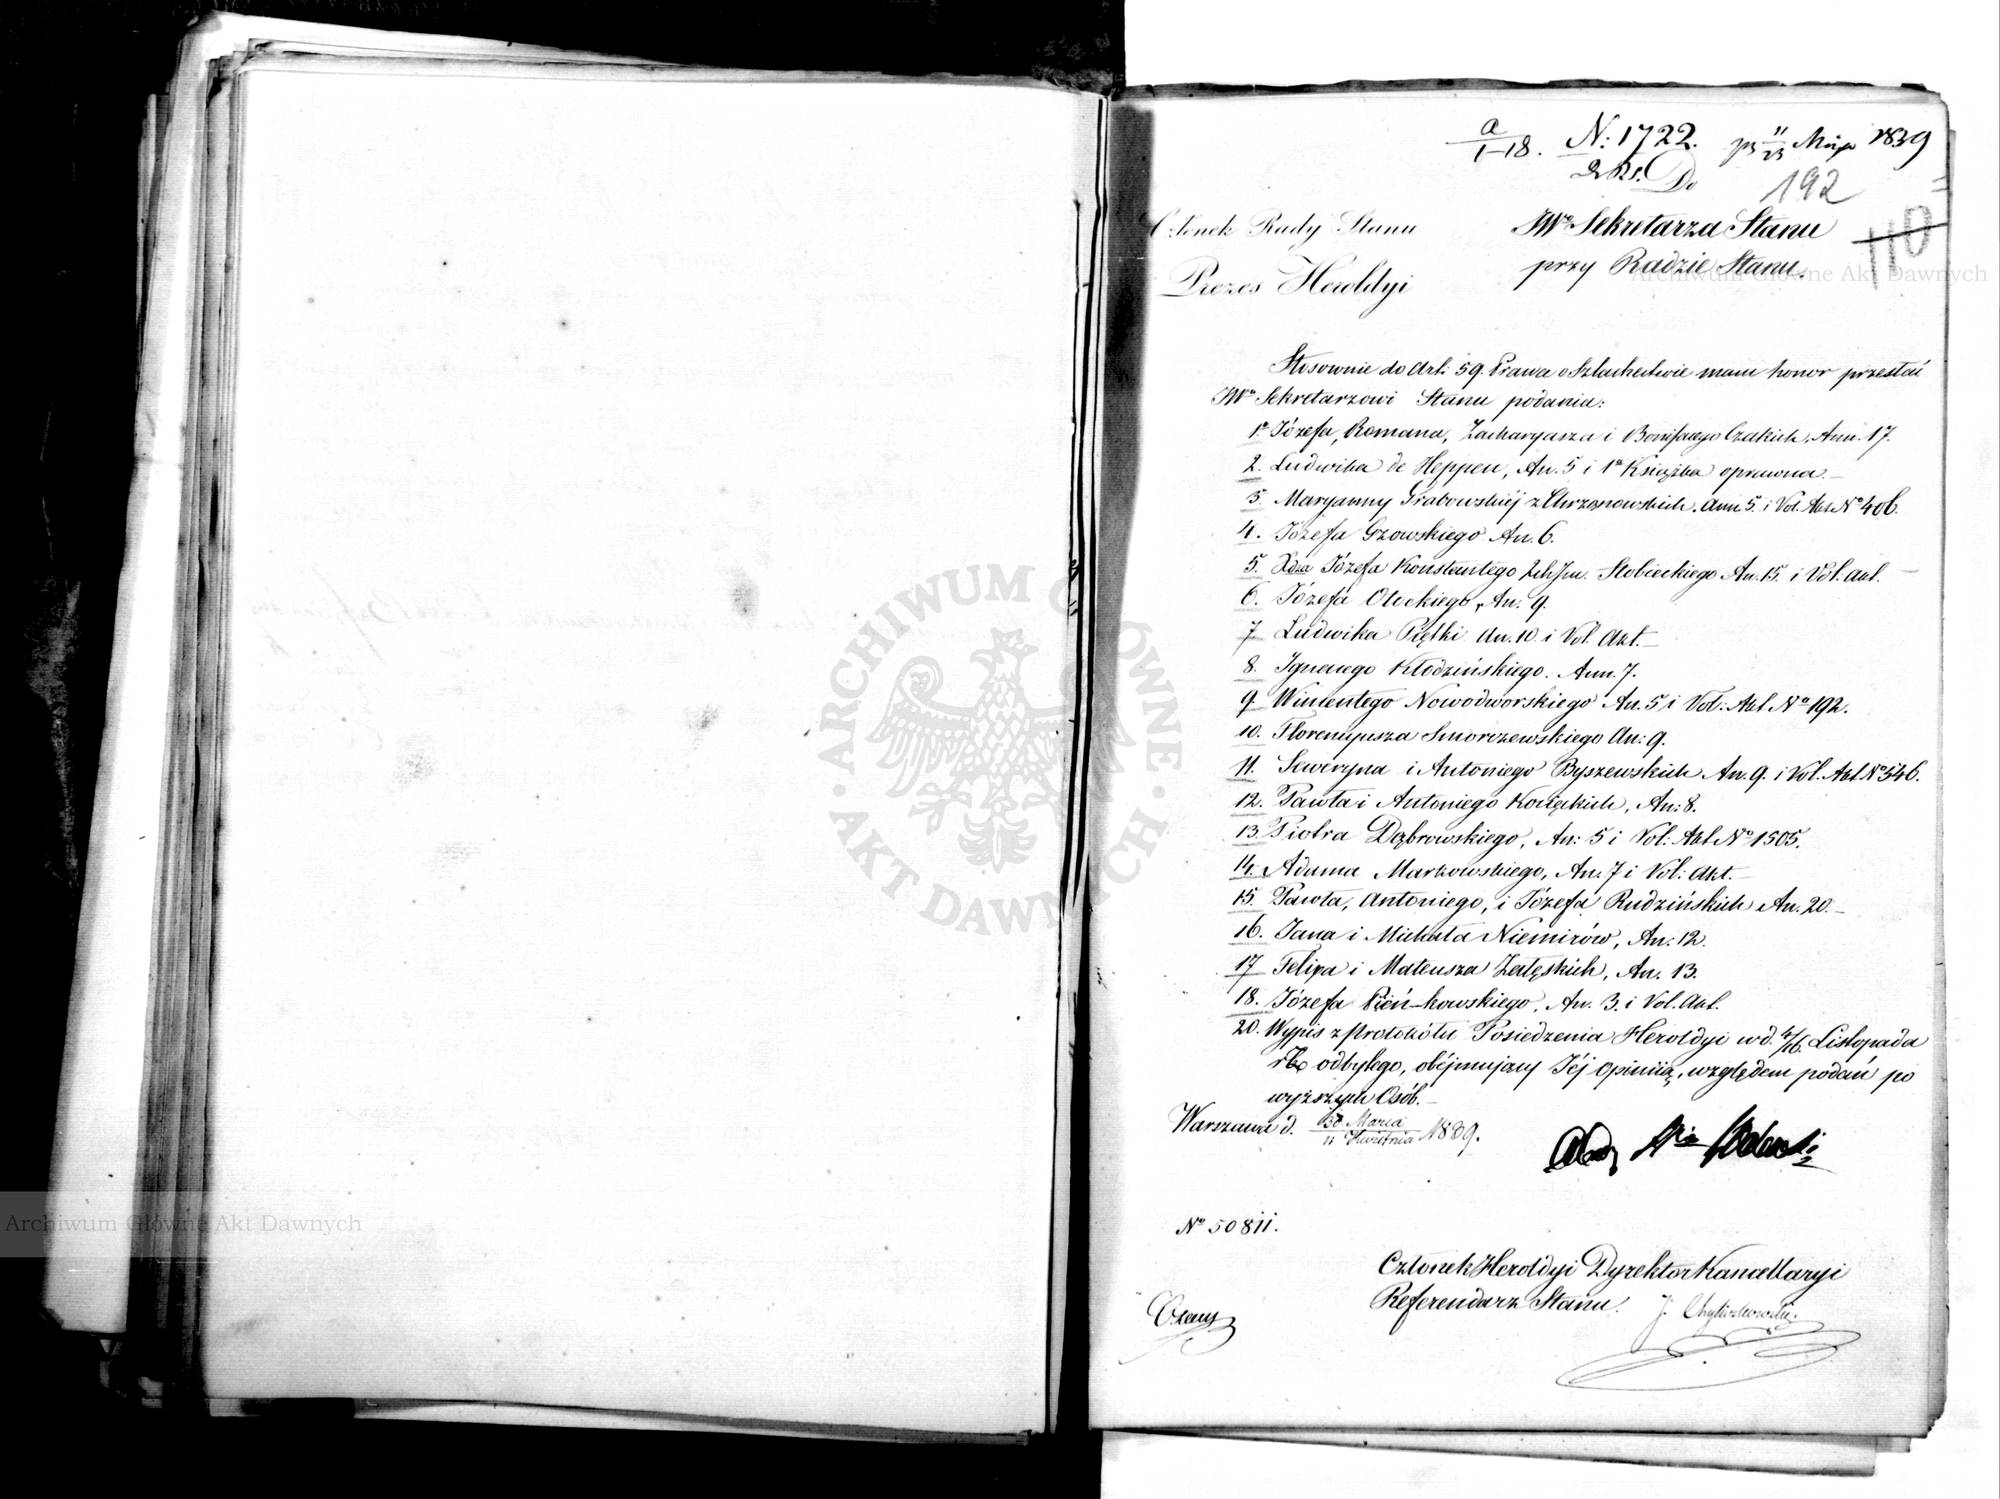 a/1-18. N: 1722. 11/23 Maja 1839
2 Ks. Do 192
Członek Rady Stanu JWo Sekretarza Stanu 110
Prezes Heroldyi przy Radzie Stanu.
Stosownie do Art: 59. Prawa o Szlachectwie mam honor przesłać
JWu Sekretarzowi Stanu podania:
1o Józefa, Romana, Zacharyasza i Bonifacego Czakich, Ann. 17.
2. Ludwika de Heppen, An. 5 i 1a Książka oprawna.
3. Maryanny Grabowskiéj z Chrzanowskich. Ann 5. i Vol. Akt No 406.
4. Józefa Gzowskiego An. 6.
5. Xdza Józefa Konstantego Stobieckiego An. 15. i Vol. Akt.
6. Józefa Otockiego, An. 9.
7 Ludwika Piętki An. 10 i Vol. Akt.
8. Ignacego Kłodzińskiego. Ann. 7.
9. Wincentego Nowodworskiego An. 5 i Vol: Akt No 192.
10. Florencyusza Smorczewskiego An: 9.
11. Seweryna i Antoniego Byszewskich An. 9. i Vol. Akt No 546.
12. Pawła i Antoniego Kosięckich, An: 8.
13. Piotra Dąbrowskiego, An: 5 i Vol: Akt No 1505.
14. Adama Markowskiego, An. 7 i Vol: Akt.
15. Pawła, Antoniego, i Józefa Rudzińskich An. 20.
16. Jana i Michała Niemirów, An: 12.
17 Felixa i Mateusza Załęskich, An. 13.
18. Józefa Pień-kowskiego, An. 3. i Vol. Akt.
20. Wypis z Protokółu Posiedzenia Heroldyi w d. 4/16. Listopada
odbytego, obéjmujący Jéj opiniią, względem podań po
wyższych Osób.
Warszawa d. 30 Marca / 11 Kwietnia 1839.
No 50811.
Członek Heroldyi Dyrektor Kancellaryi
Referendarz Stanu.
Archiwum Główne Akt Dawnych
Archiwum Główne Akt Dawnych
ARCHIWUM GŁÓWNE AKT DAWNYCH